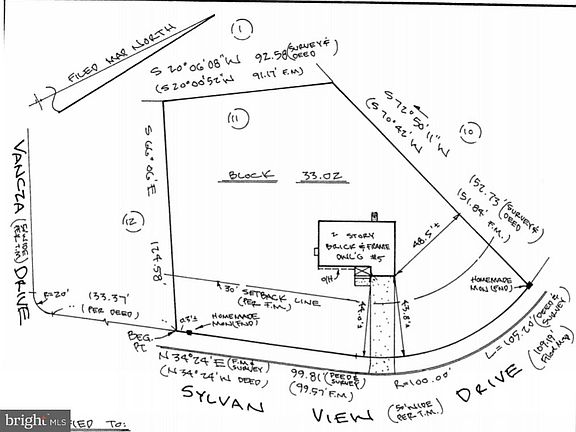 1
FILED MAP NORTH
S 20°06'08"W 92.58 (SURVEY & DEED
(S 20°00'52"W 91.17' F.M)
S 72°50'11"W
(S 70°42' W)
10
11
BLOCK 33.02
152.73' (SURVEY & DEED
151.84' F.M.)
S 66°06'E
124.58'
12
VANCZA (50' WIDE PER T.M.) DRIVE
2 STORY
BRICK & FRAME
DWL'G #5
O/H
48.5'±
HOMEMADE
MON (FND)
30' SETBACK LINE
(PER F.M.)
R=20'
133.37'
(PER DEED)
0.3'±
HOMEMADE
MON (FND)
BEG.
PT
44.0'±
43.8'±
N 34°24'E (F.M & SURVEY)
(N 34°24'W DEED)
99.81' (DEED & SURVEY)
(99.57' F.M.)
R=100.00'
L=105.20' (DEED & SURVEY)
(109.19' FILED MAP)
SYLVAN VIEW (50' WIDE PER T.M.) DRIVE
bright MLS
FIED TO: